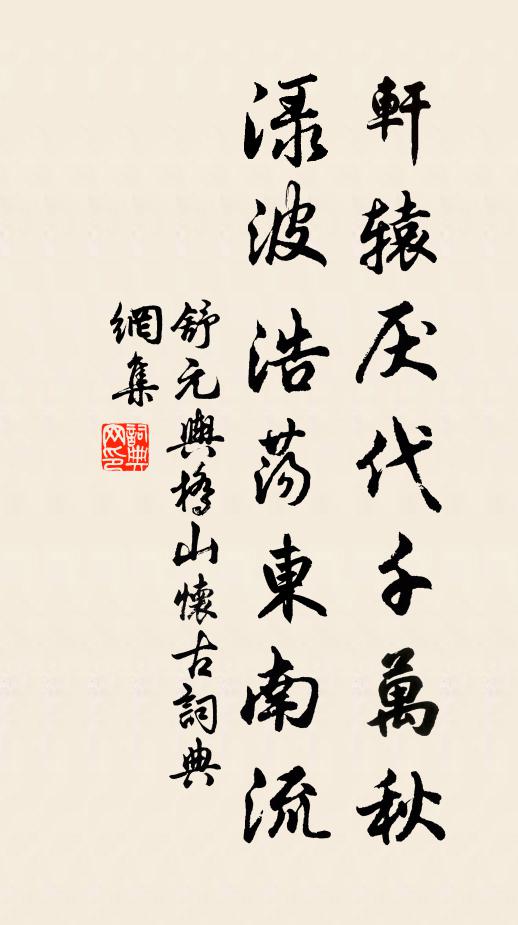 軒辕厌代千萬秋
渌波浩蕩東南流
舒元輿橋山懷古詞典
網集
詞典
网印